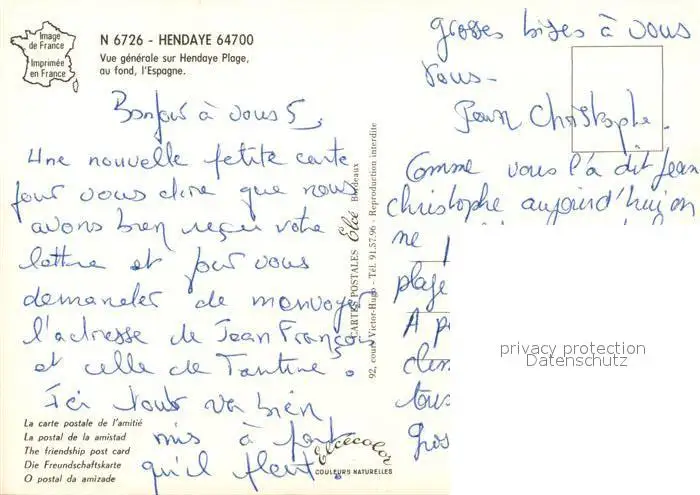 Image
de France
Imprimée
en France
N 6726 - HENDAYE 64700
Vue générale sur Hendaye Plage,
au fond, l'Espagne.
Bonjour à vous 5,
Une nouvelle petite carte
pour vous dire que nous
avons bien reçu votre
lettre et pour vous
demander de m'envoyer
l'adresse de Jean François
et celle de Tantine.
Ici tout va bien
mis à part
qu'il pleut.
La carte postale de l'amitié
La postal de la amistad
The friendship post card
Die Freundschaftskarte
O postal da amizade
Elcécolor
COULEURS NATURELLES
CARTES POSTALES Elcé Bordeaux
92, cours Victor-Hugo - Tél. 91.57.96 - Reproduction interdite
grosses bises à vous
tous-
Jean Christophe.
Comme vous l'a dit Jean
Christophe aujourd'hui on
ne
plage
A
tous
Gros
privacy protection
Datenschutz